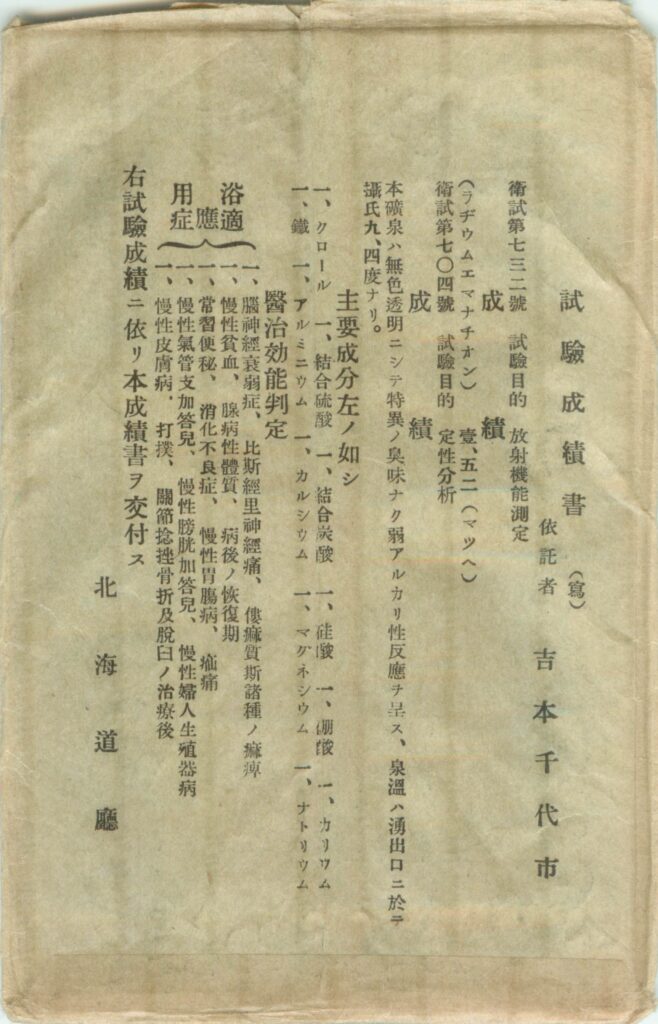 試驗成績書（寫）
依託者　吉本千代市
衛試第七三二號　試驗目的　放射機能測定
成績
（ラヂウムエマナチオン）　壹、五二（マツヘ）
衛試第七〇四號　試驗目的　定性分析
成績
本礦泉ハ無色透明ニシテ特異ノ臭味ナク弱アルカリ性反應ヲ呈ス、泉溫ハ湧出口ニ於テ
攝氏九、四度ナリ。
主要成分左ノ如シ
一、クロール　一、結合硫酸　一、結合炭酸　一、硅酸　一、硼酸　一、カリウム
一、鐵　一、アルミニウム　一、カルシウム　一、マグネシウム　一、ナトリウム
醫治効能判定
浴用適應症
一、腦神經衰弱症、比斯經里神經痛、僂痲質斯諸種ノ痲痺
一、慢性貧血、腺病性體質、病後ノ恢復期
一、常習便秘、消化不良症、慢性胃腸病、疝痛
一、慢性氣管支加答兒、慢性膀胱加答兒、慢性婦人生殖器病
一、慢性皮膚病、打撲、關節捻挫骨折及脫臼ノ治療後
右試驗成績ニ依リ本成績書ヲ交付ス
北海道廳